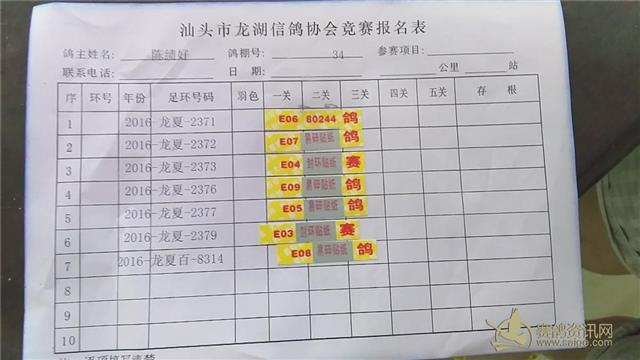 汕头市龙湖信鸽协会竞赛报名表
鸽主姓名: 陈绩好 鸽棚号: 34 参赛项目:
联系电话: 日期: 公里 站
序 环号 年份 足环号码 羽色 一关 二关 三关 四关 五关 存根
1 2016-龙夏-2371 E06 80244 鸽
2 2016-龙夏-2372 E07 易碎贴纸 鸽
3 2016-龙夏-2373 E04 封环贴纸 赛
4 2016-龙夏-2376 E09 易碎贴纸 鸽
5 2016-龙夏-2377 E05 易碎贴纸 鸽
6 2016-龙夏-2379 E03 封环贴纸 赛
7 2016-龙夏百-8314 E08 易碎贴纸 鸽
8
9
10
逐项填写清楚
赛鸽资讯网
www.saige.com